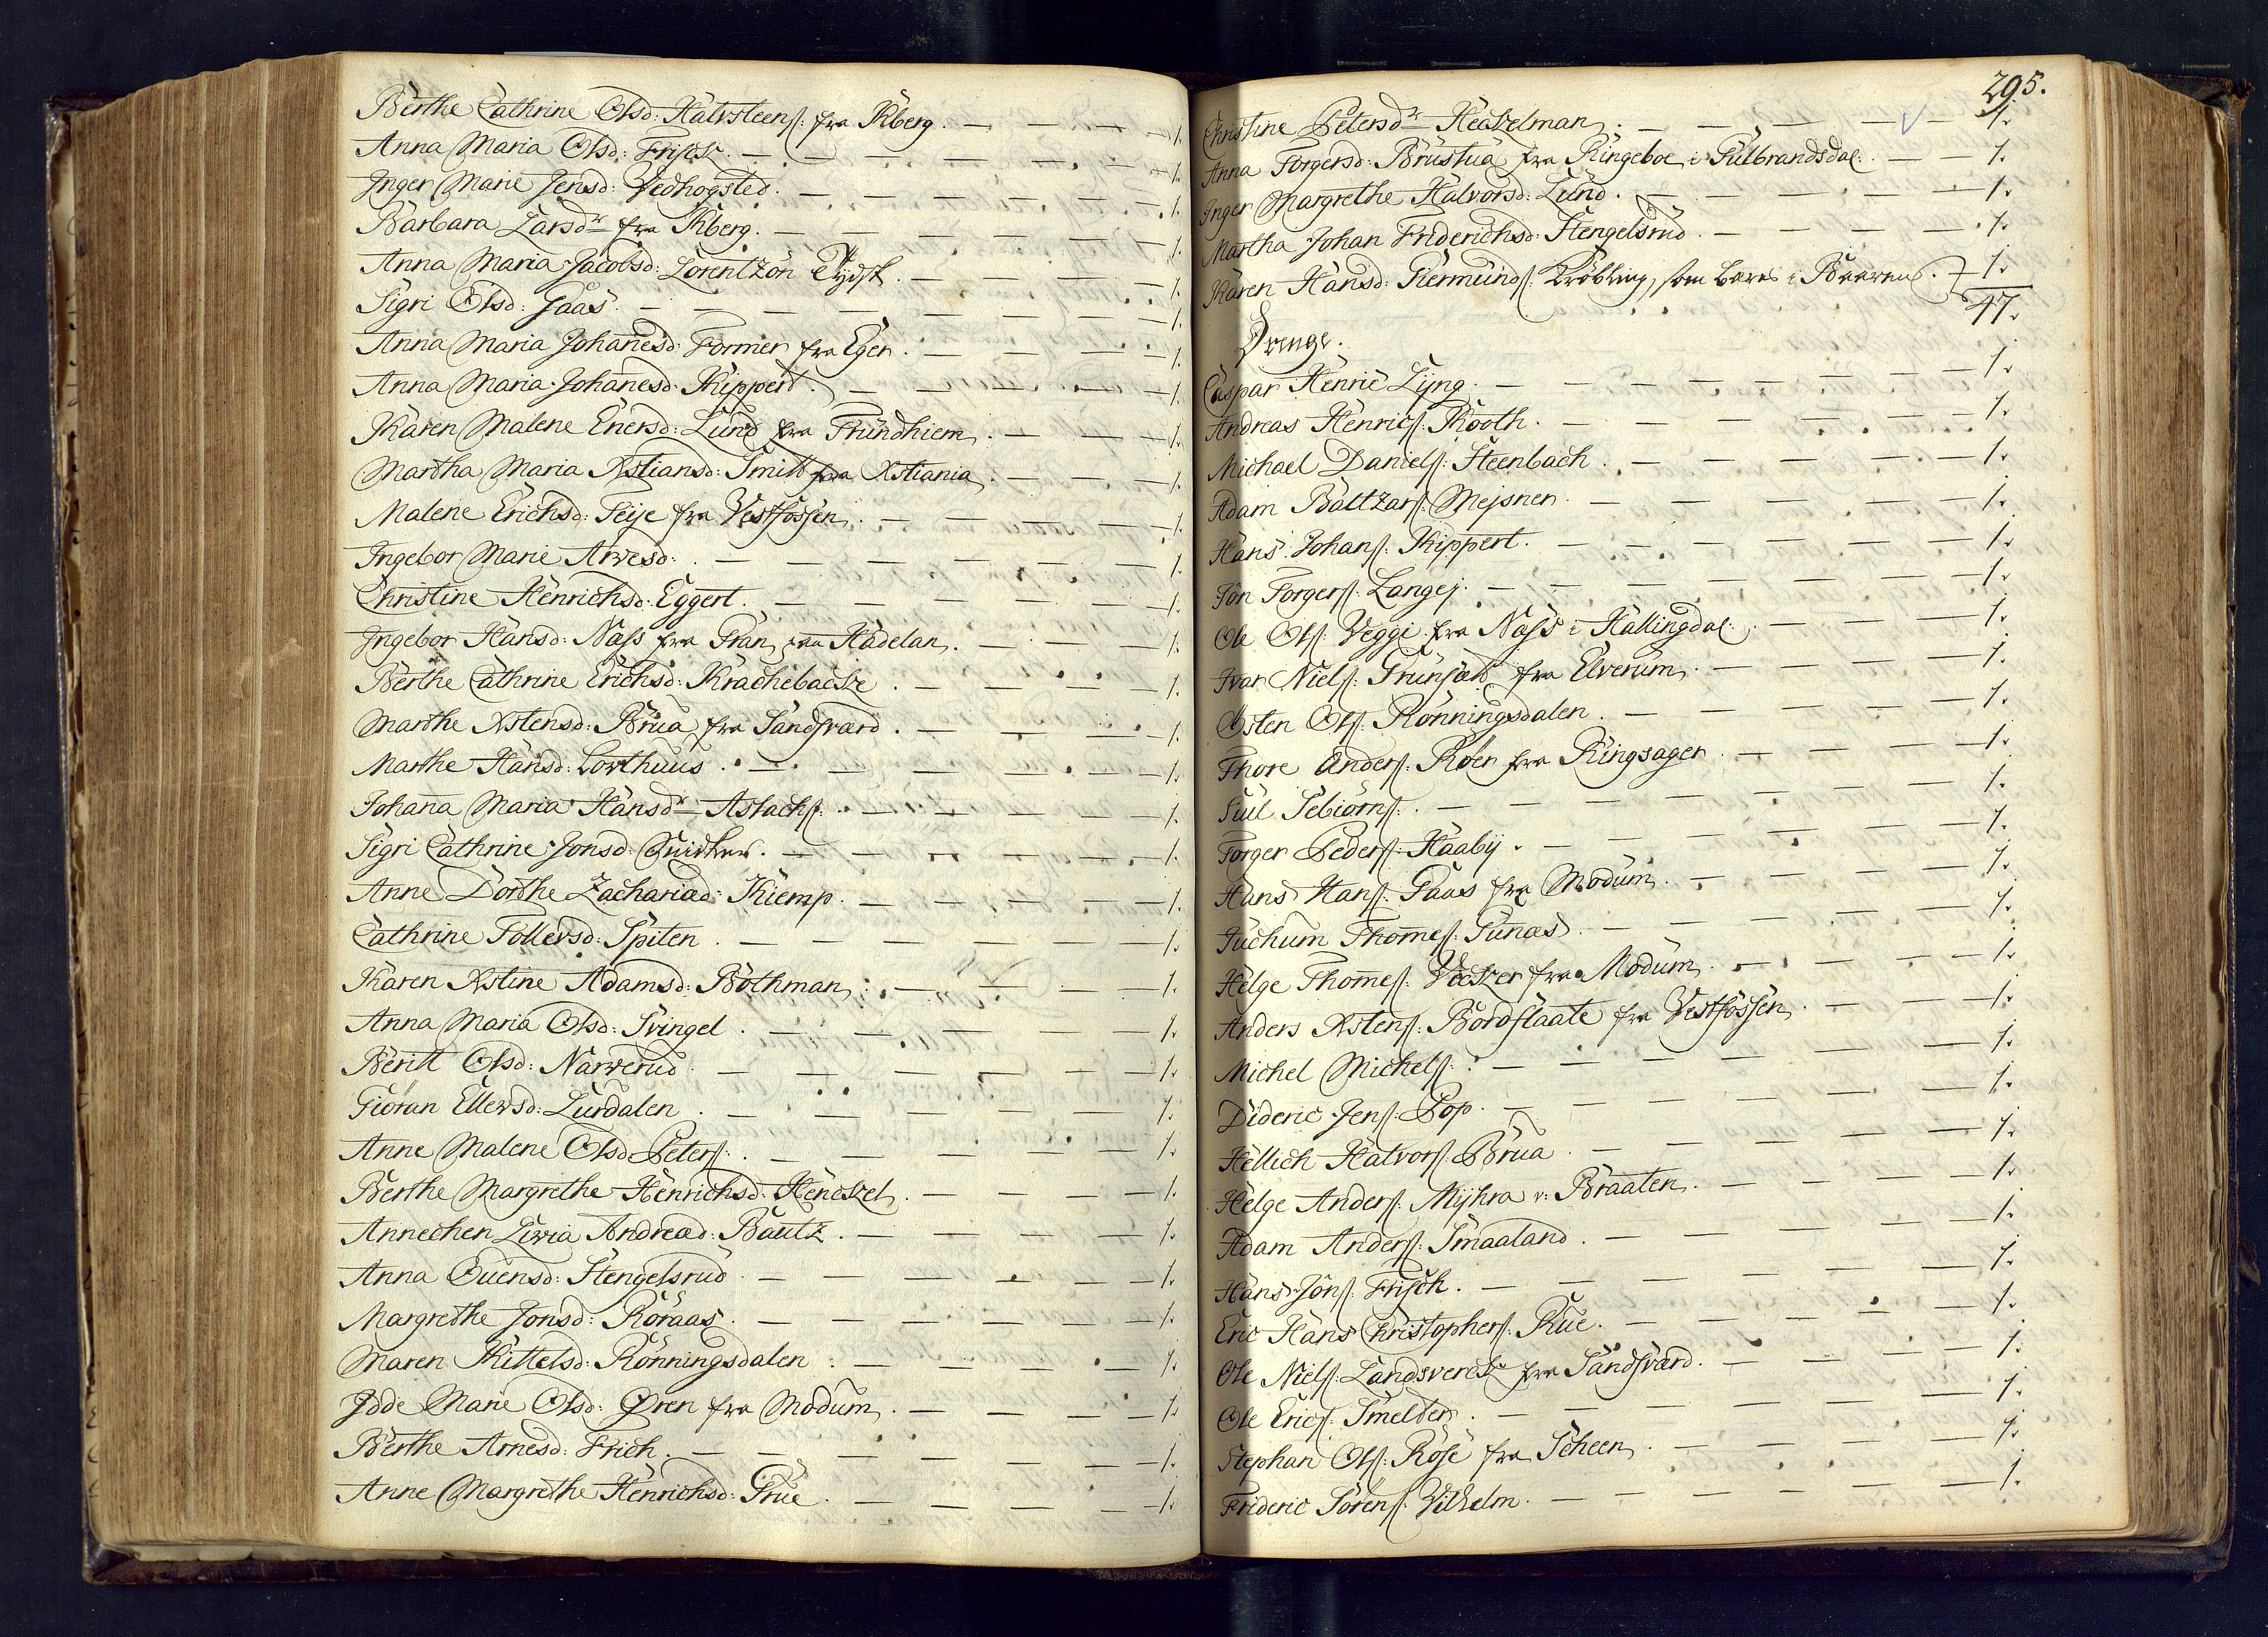 Berthe Cathrine Olsd: Halvsteenſ: fra Kberg. — — — — 1.
Anna Maria Olsd: — — — — 1.
Inger Marie Jensd: Vedhogsted. — — — — 1.
Barbara Larsdr fra Kberg. — — — — 1.
Anna Maria Jacobsd: Lorentzon Tydsk. — — — — 1.
Sigri Olsd: — — — — 1.
Anna Maria Johanesd: Former fra Eger. — — — — 1.
Anna Maria Johanesd: Kippert. — — — — 1.
Karen Malene Enersd: Lund fra Trundhiem. — — — 1.
Martha Maria Xstiansd: Smitt fra Xstiania. — — — 1.
Malene Erichsd: Teije fra Vestfossen. — — — — 1.
Ingebor Marie Arvesd: — — — — 1.
Christine Henrichsd: Eggert. — — — — 1.
Ingebor Hansd: Næss fra Gran paa Hadelan. — — — 1.
Berthe Cathrine Erichsd: — — — — 1.
Marthe Xstensd: Brua fra Sandsværd. — — — 1.
Marthe Hansd: Lorthuus. — — — — 1.
Johana Maria Hansdr Aslachſ: — — — — 1.
Sigri Cathrine Jonsd: — — — — 1.
Anne Dorthe Zachariæd: Kiemp. — — — — 1.
Cathrine Tollevsd: Spiten. — — — — 1.
Karen Xstine Adamsd: Bothman. — — — — 1.
Anna Maria Olsd: Svingel. — — — — 1.
Beritt Olsd: Narverud. — — — — 1.
Giöran Ellevsd: Lurdalen. — — — — 1.
Anne Malene Olsd: Peterſ: — — — — 1.
Berthe Margrethe Henrichsd: Henckel. — — — — 1.
Annechen Livia Andreæd: Bautz. — — — — 1.
Anna Ouensd: Stengelsrud. — — — — 1.
Margrethe Jonsd: Röraas. — — — — 1.
Maren Kittelsd: Rönningsdalen. — — — — 1.
Jdde Marie Olsd: Øren fra Modum. — — — — 1.
Berthe Arnesd: Frich. — — — — 1.
Anne Margrethe Henrichsd: Grue. — — — — 1.
295.
Christine Petersdr Heckelman. — — — — 1.
Anna Torgersd: Brustua fra Ringeboe i Gulbrandsdal. — — 1.
Inger Margrethe Halvorsd: Lund. — — — — 1.
Martha Johan Friderichsd: Stengelsrud. — — — — 1.
Karen Hansd: Giermundſ: som 1.
47.
Drenge.
Caspar Henric Lyng. — — — — 1.
Andreas Henricſ: Rooth. — — — — 1.
Michael Danielſ: Steenbach. — — — — 1.
Adam Baltzarſ: Mejsner. — — — — 1.
Hans Johanſ: Kippert. — — — — 1.
Jon Torgerſ: Langej. — — — — 1.
Ole Olſ: Veggi fra Næss i Hallingdal. — — 1.
Ivar Nielſ: fra Elverum. — — — 1.
Østen Olſ: Rönningsdalen. — — — — 1.
Thore Anderſ: Roen fra Ringsager. — — — 1.
Juul Sebiörnſ: — — — — 1.
Torger Pederſ: Haaby. — — — — 1.
Hans Hanſ: Gaas fra Modum. — — — 1.
Juchum Thomeſ: — — — — 1.
Helge Thomeſ: fra Modum. — — — 1.
Anders Xstenſ: Bordslaate fra Vestfossen. — — — 1.
Michel Michelſ: — — — — 1.
Dideric Jenſ: Pop. — — — — 1.
Hellich Halvorſ: Brua. — — — — 1.
Helge Anderſ: Myhra v: Braaten. — — — 1.
Adam Anderſ: Smaaland. — — — — 1.
Hans Jonſ: Frisch. — — — — 1.
Eric Hans Christopherſ: Rue. — — — — 1.
Ole Nielſ: Landsverck fra Sandsværd. — — — 1.
Ole Ericſ: Smelder. — — — — 1.
Stephan Olſ: Rose fra Scheen. — — — 1.
Frideric Sörenſ: Vilhelm. — — — — 1.